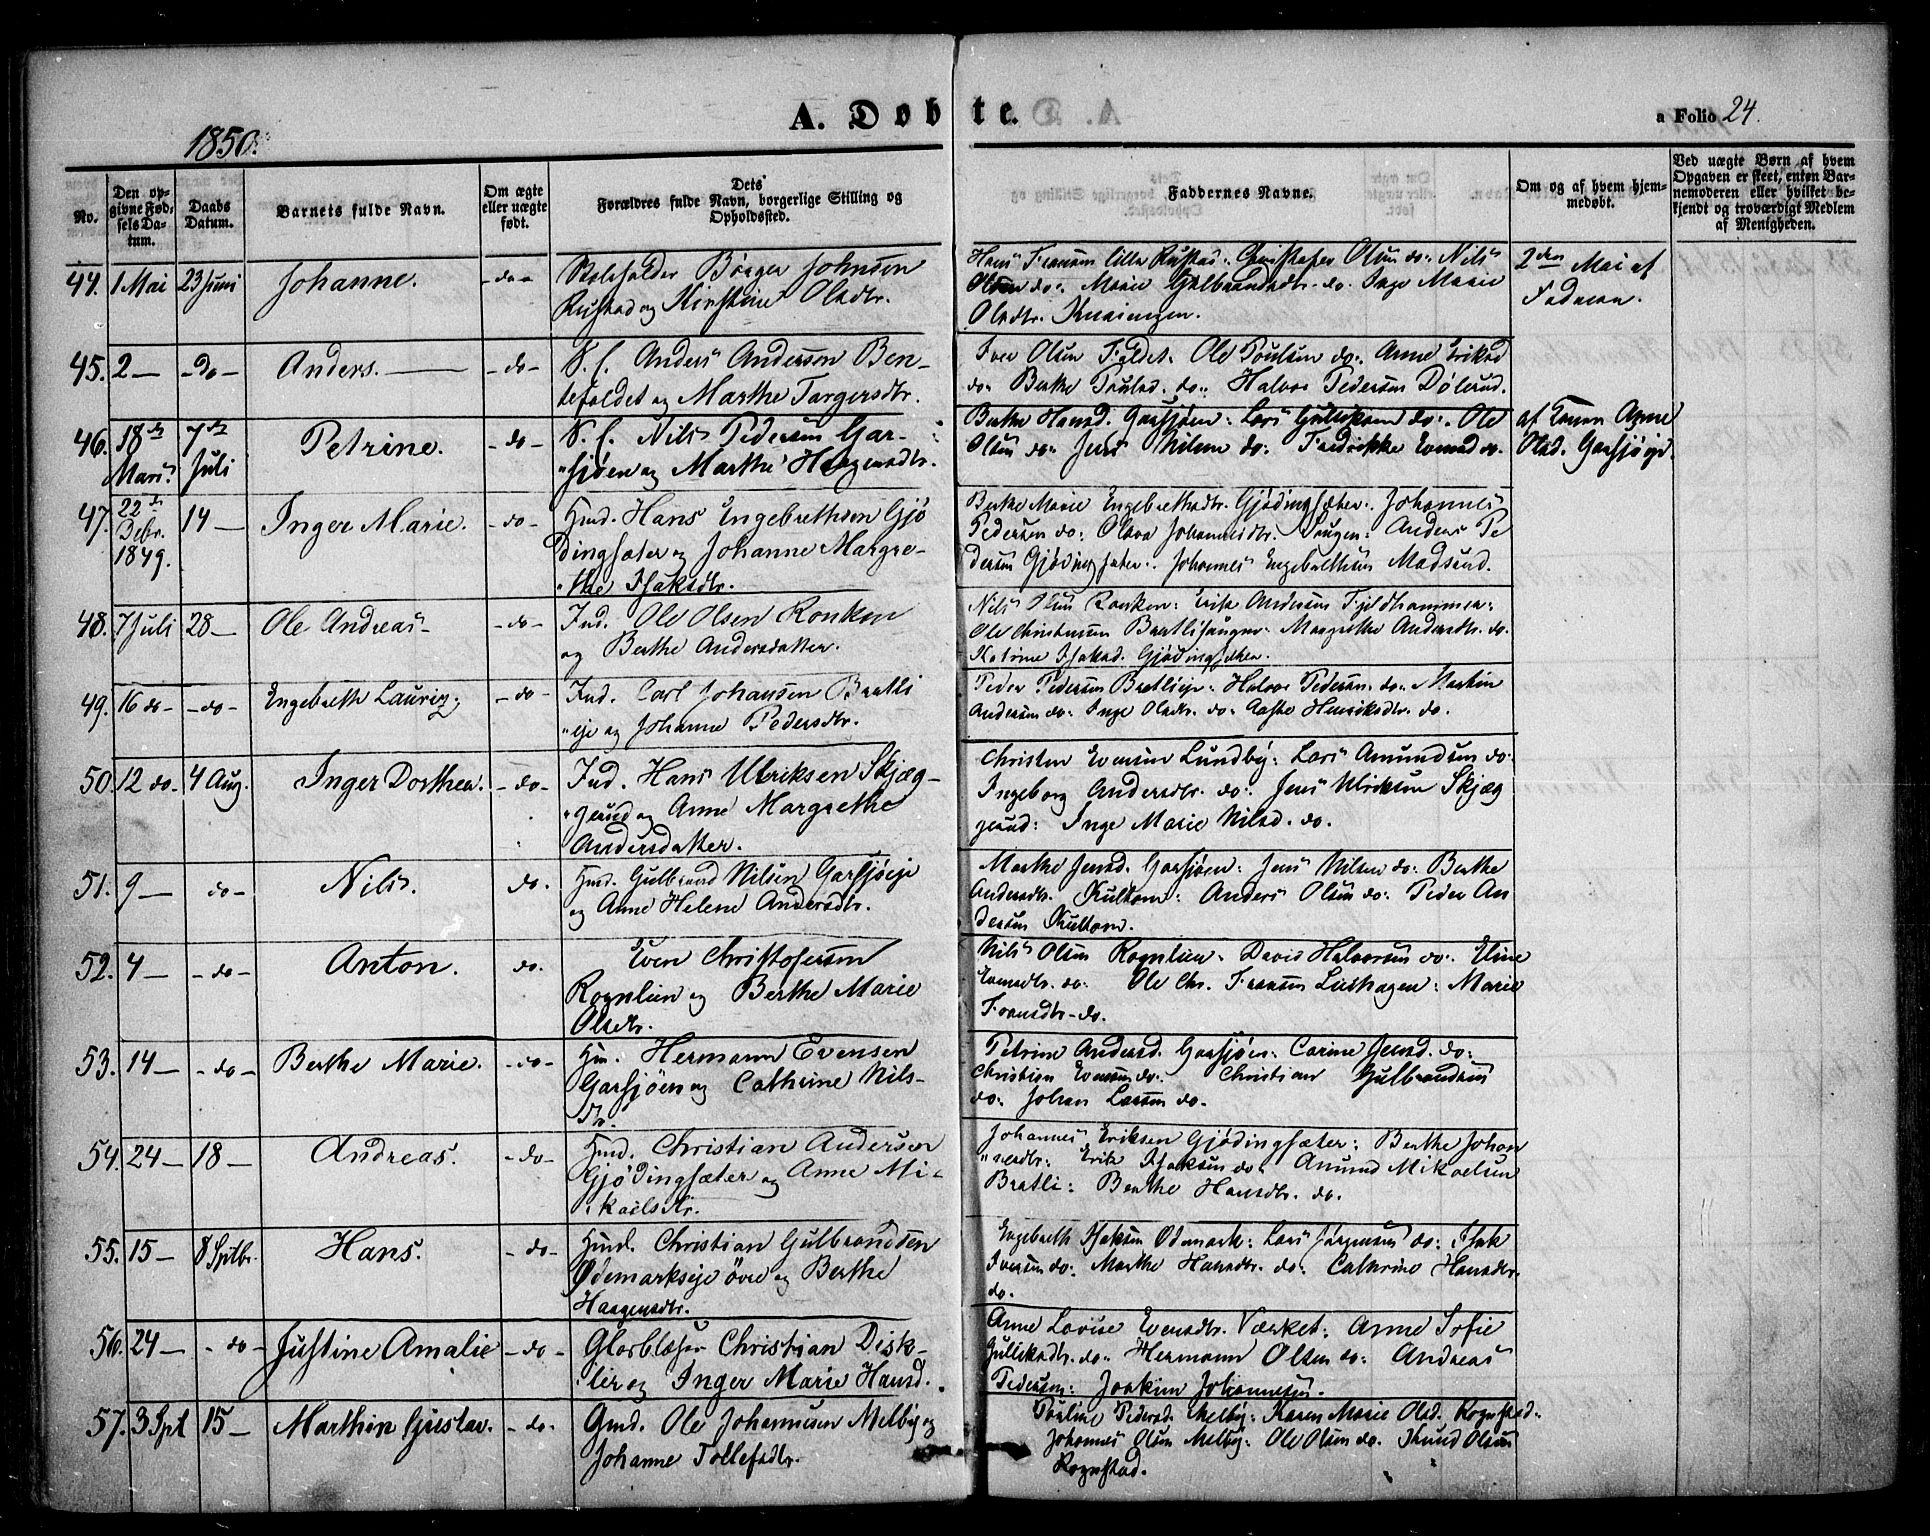 1850.
A. Døbte.
a Folio 24.
No.
Den op-
givne Fød-
sels Da-
tum.
Daabs
Datum.
Barnets fulde Navn.
Om ægte
eller uægte
født.
Dets
Forældres fulde Navn, borgerlige Stilling og
Opholdssted.
Faddernes Navne.
Om og af hvem hjem-
medøbt.
Ved uægte Børn af hvem
Opgaven er skeet, enten Bar-
nemoderen eller hvilket be-
kjendt og troværdigt Medlem
af Menigheden.
44. 1 Mai 23 Juni Johanne. -do-
Børger Johnsen
Rustad og Kirstine Olsdtr.
Hans Fransen lille Rustad: Christofer Olsen do: Nils
Olsen do: Marie Gulbrandsdtr. do. Inge Marie
Olsdtr.
2den Mai af
Faderen.
45. 2 — -do- Anders. — -do-
Anders Andersen Ben-
tefoldet og Marthe Torgersdtr.
Iver Olsen Foldet: Ole Poulsen do: Anne Eriksd
do: Berthe Poulsd. do: Halvor Pedersen Dølerud.
46. 18de Mars. 7de Juli Petrine. -do-
Nils Pedersen Gar-
sjøen og Marthe Haagensdtr.
Berthe Hansd. Garsjøen: Lars Gulliksen do: Ole
Olsen do: Jens Nilsen do: Fredrikke Evensd do.
af Konen Anne
Olsd. Garsjøeje.
47. 22de Debr. 1849. 14 — Inger Marie. -do-
Hmd. Hans Engebrethsen Gjø
dingsæter og Johanne Margre-
the Isaksdtr.
Berthe Marie Engebrethsdtr. Gjødingsæter: Johannes
Pedersen do: Olava Johannesdtr. Haugen: Anders Pe
dersen Gjødingsæter: Johannes Engebrethsen Madserud.
48. 7 Juli 28 — Ole Andreas -do-
Ind. Ole Olsen Ronken
og Berthe Andersdatter.
Nils Olsen Ronken: Erik Andersen Fjeldhammer:
Ole Christensen Bratlisaugen: Margrethe Andersdtr. do.
Katrine Isaksd. Gjødingsæter.
49. 16 do- -do- Engebreth Lauriz. -do-
Ind. Carl Johansen Bratli
eje og Johanne Pedersdtr.
Peder Pedersen Bratlieje: Halvor Pedersen do: Martin
Andersen do: Inge Olsdtr. do: Aaste Henriksdtr. do.
50. 12 do- 4 Aug. Inger Dorthea. -do-
Ind. Hans Ulriksen Skjæg-
gerud og Anne Margrethe
Andersdatter.
Christen Evensen Lundby: Lars Amundsen do:
Ingeborg Andersdtr. do: Jens Ulriksen Skjæg
gerud: Inge Marie Nilsd. do.
51. 9 — do- Nils. do.
Hmd. Gulbrand Nilsen Garsjøeje
og Anne Helene Andersdtr.
Marthe Jensd. Garsjøen: Jens Nilsen do: Berthe
Andersdtr. Kultom: Anders Olsen do: Peder An
dersen Kultom.
52. 4 — -do- Anton. do.
Even Christofersen
Rognlien og Berthe Marie
Olsdtr.
Nils Olsen Rognlien: David Halvorsen do: Eline
Evensdtr. do: Ole Chr. Fransen Lieshagen: Marie
Fransdtr. do.
53. 14 — -do- Berthe Marie. -do-
Hm. Hermann Evensen
Garsjøen og Cathrine Nils-
dr.
Petrine Andersd. Garsjøen: Carine Jensd. do:
Christian Evensen do: Christian Gulbrandsen
do: Johan Larsen do.
54. 24 — 18 — Andreas. -do-
Hmd. Christian Andersen
Gjødingsæter og Anne Mi-
kaelsdtr.
Johannes Eriksen Gjødingsæter: Berthe Johan
nesdtr: Erik Isaksen do: Amund Mikaelsen
Bratli: Berthe Hansdtr. do.
55. 15 — 8 Sptbr. Hans. -do-
Hmd. Christian Gulbrandsen
Ødemarkseje øvre og Berthe
Haagensdtr.
Engebreth Isaksen Ødemark: Lars Jørgensen do: Isak
Iversen do: Marthe Hansdtr. do: Cathrine Hansdtr.
do.
56. 24 — -do- Justine Amalie -do-
Glasblæser Christian Disk-
ler og Inger Marie Hansd.
Anne Lovise Evensdtr. Værket: Anne Sofie
Gulliksdtr. do: Hermann Olsen do: Andreas
Pedersen: Joakim Johannesen.
57. 3 Spt 15 — Marthin Gustav. -do-
Gmd. Ole Johannesen Melby og
Johanne Tollefsdtr.
Pauline Pedersd. Melby: Karen Marie Olsd. Rognstad:
Johannes Olsen Melby: Ole Olsen do. Knud Olsen
Rognstad.